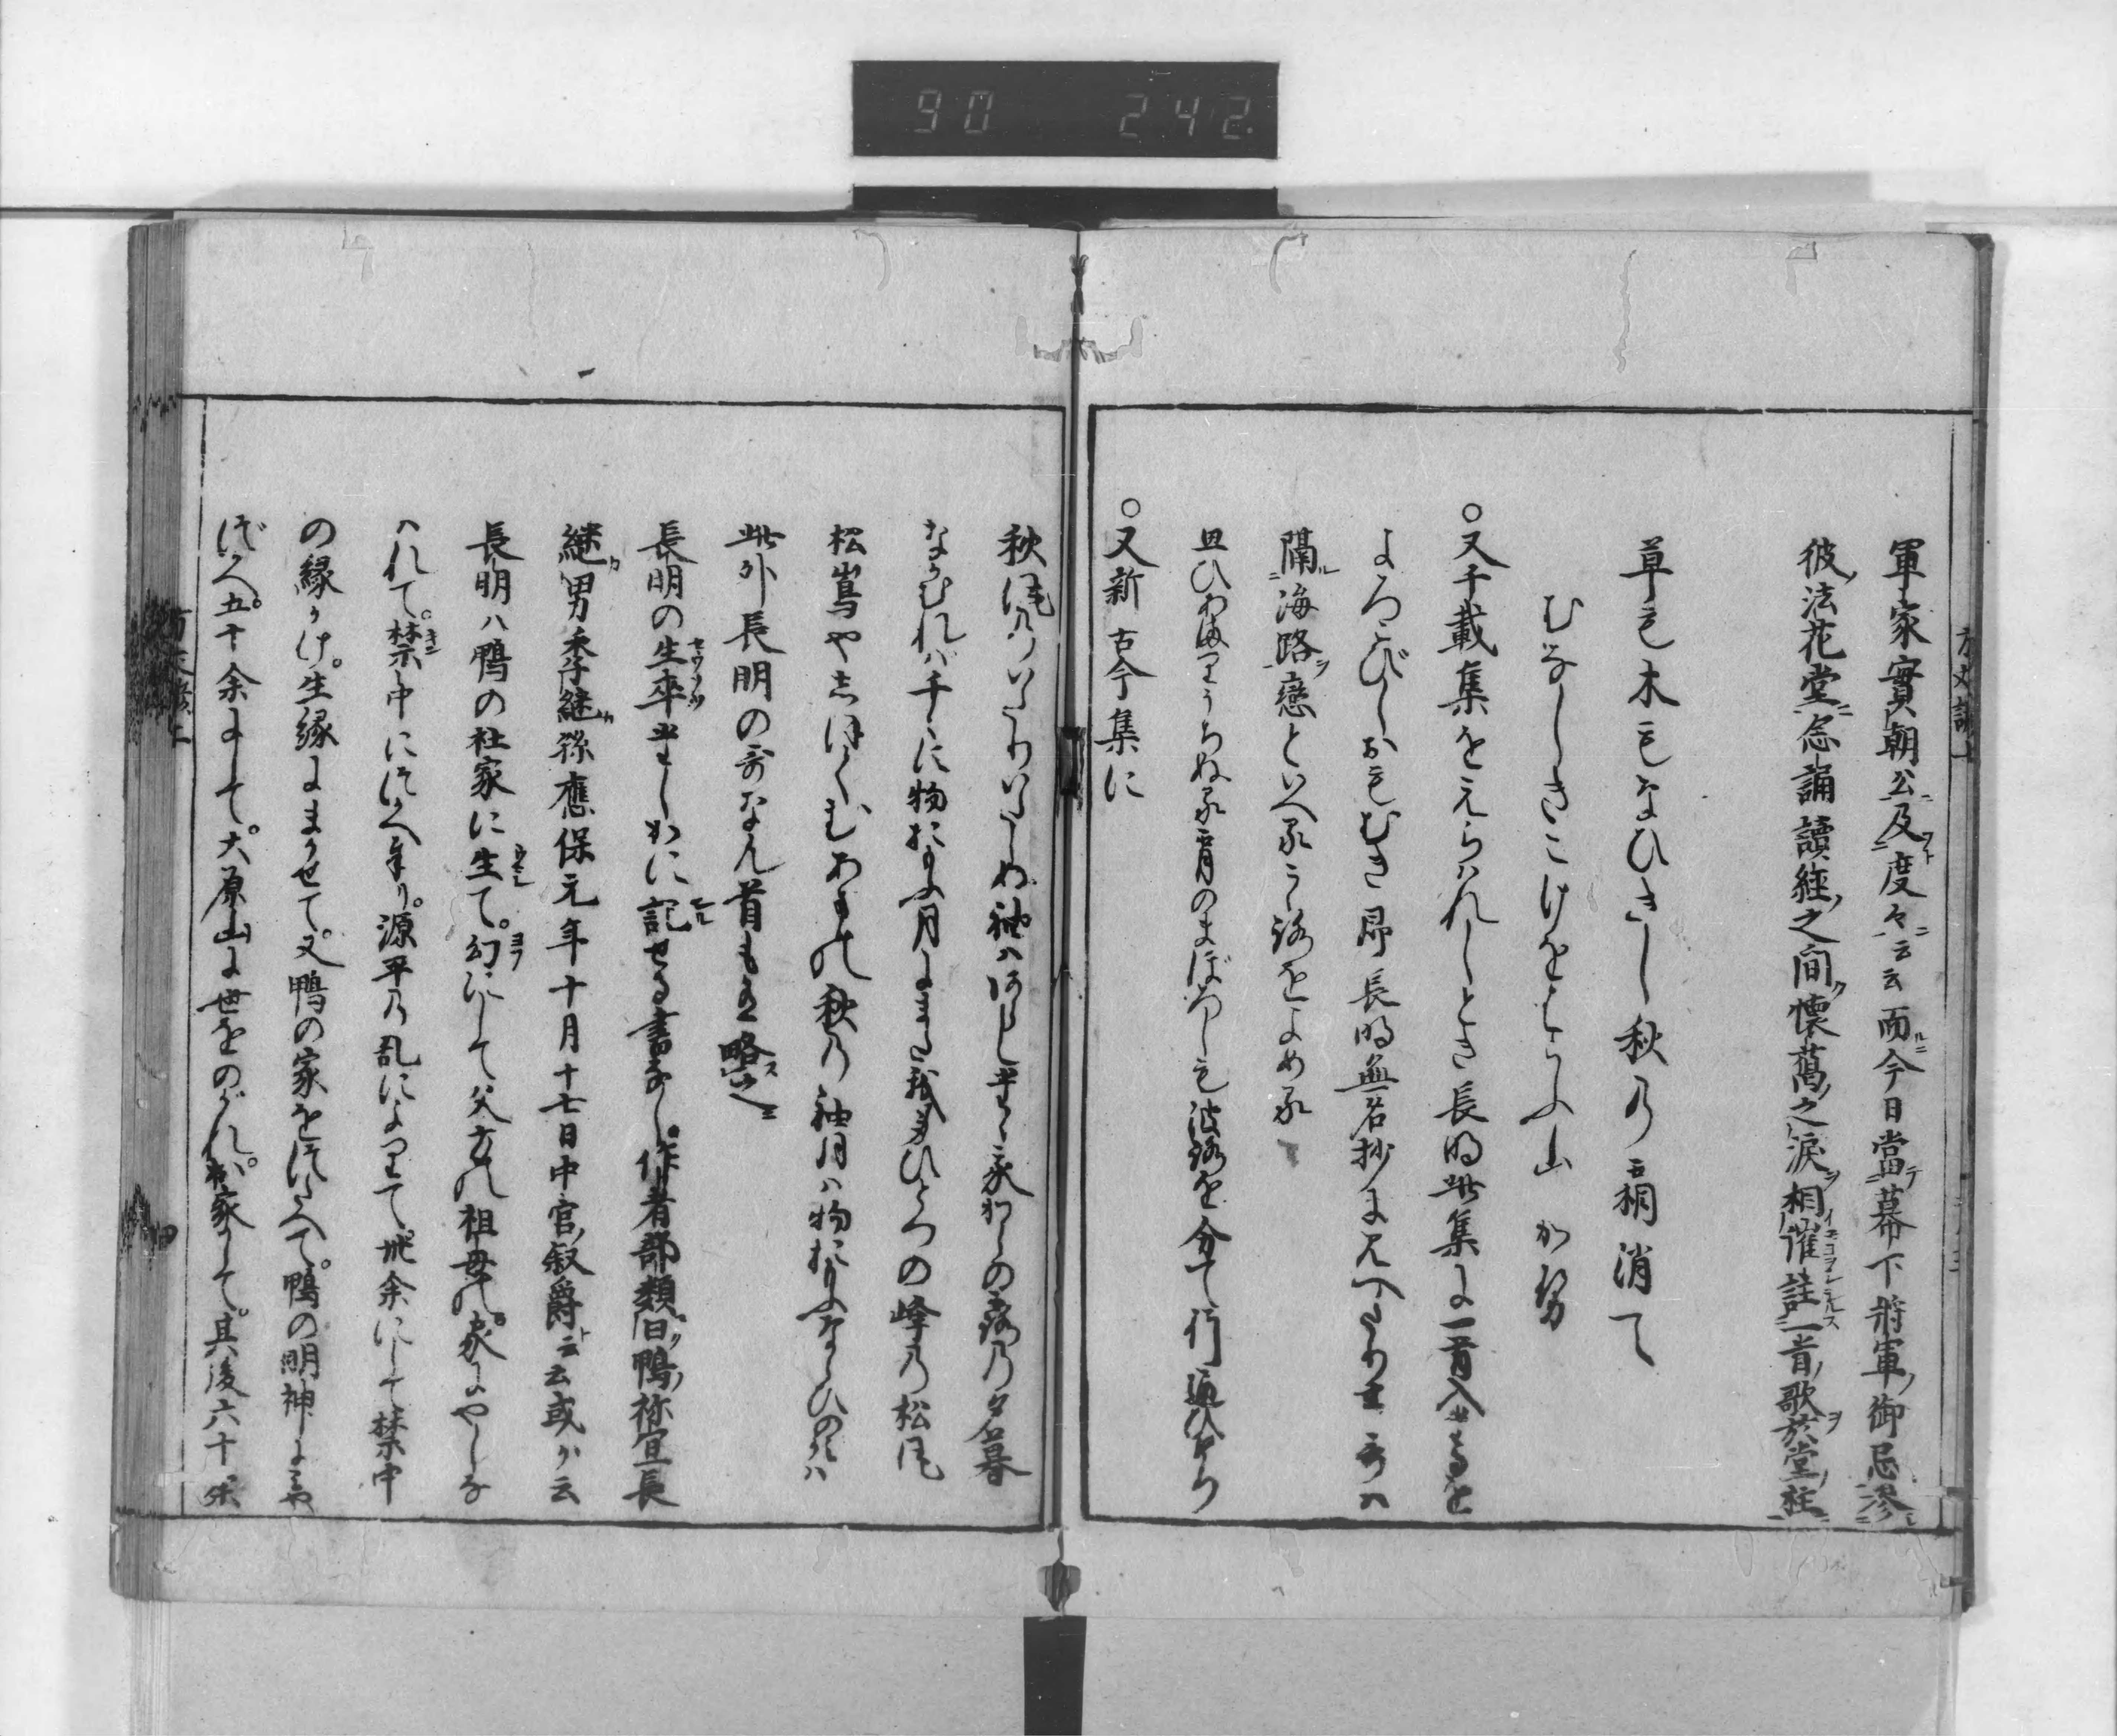 90 242
軍家實朝公及度々云云而今日當幕下將軍御忌參
彼法花堂念誦讀經之間懷舊之淚相催註一首歌於堂柱
草も木もなひきし秋の霜消て
むなしきこけをはらふ山かせ
○又千載集をえらはれしとき長明此集に一首入せるを
よろこびしおもむき即長明無名抄に見へたり其哥は
隔海路戀といへる心を讀める
思ひあまりうちぬる宵のまぼろしも波路を分て行通ひけり
○又新古今集に
秋風のいたりいたらぬ袖はあらし只我からの露の夕暮
なかむれば千々に物おもふ月にまた我身ひとつの峰の松風
松嶌や志ほくむあまの秋の袖月は物おもふならひのみかは
此外長明の哥なん首もあり略之
長明の生卒たしかに記せる書なし作者部類曰鴨祢宜長
継男季継孫應保元年十月十七日中宮叙爵云云或か云
長明ハ鴨の社家に生て幼にして父方の祖母の家にやしな
ハれて禁中につかへ
源平の乱によりて
余にして禁中
の縁かけ生縁にまかせて又鴨の家をつたへて鴨の明神に
五十余にして大原山に世をのがれ出家して其後六十